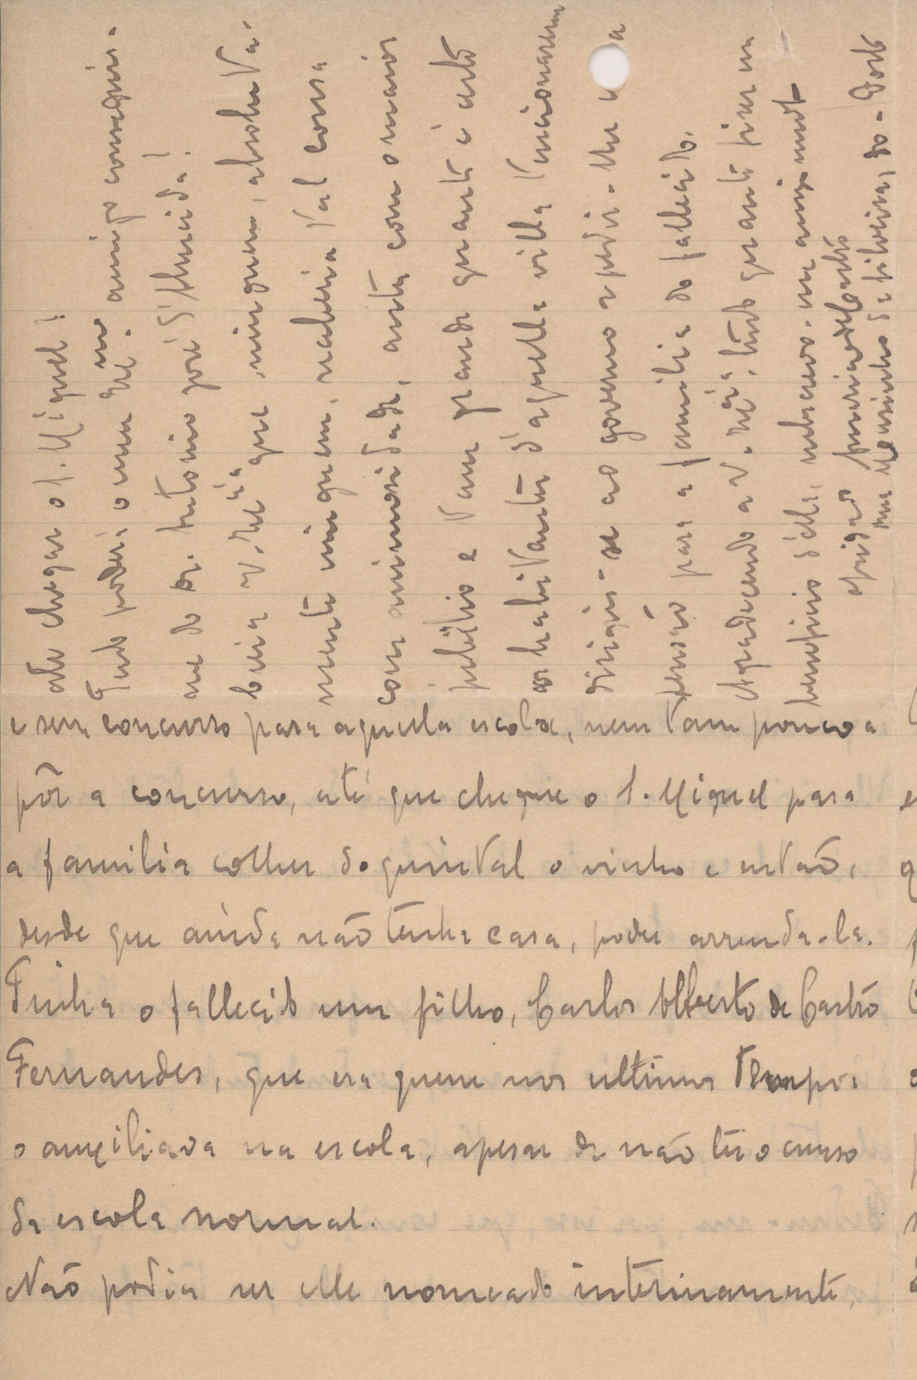 e seu concurso para aquella escola, nem tam pouco a
pôr a concurso, até que chegue o S. Miguel para
a familia colher do quintal o vinho e então,
desde que ainda não tenha casa, poder arrenda-la.
Tinha o fallecido um filho, Carlos Alberto de Castro
Fernandes, que era quem nos ultimos tempos
o auxiliava na escola, apesar de não ter o curso
da escola normal.
Não podia ser elle nomeado interinamente,
até chegar o S. Miguel?
Tudo poderá o meu Ex.mo amigo conseguir.
me do Dr. Antonio José d'Almeida!
Creia V. Ex.cia que, ninguem, absoluta-
mente ninguem, naberia tal cousa
com animosidade, antes com o maior
jubilio e tam grande quanto é certo
os habitantes d'aquella villa tencionarem
dirigir-se ao governo a pedir-lhe a
pensão para a familia do fallecido.
Agradecendo a V. Ex.cia tudo quanto fizer em
beneficio d'ella, subscrevo-me
amigo
Rua Mousinho da Silveira, 80 - Porto